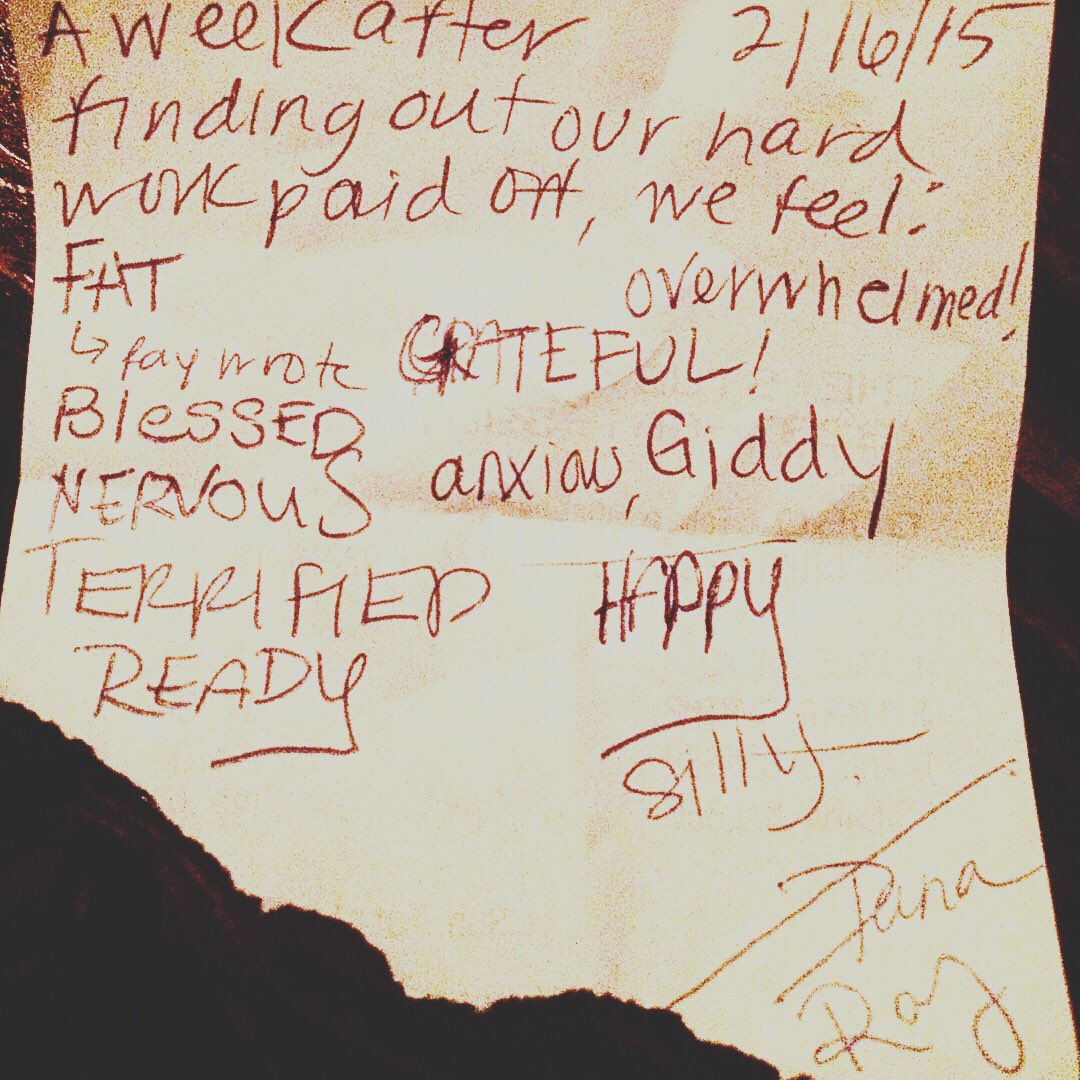 A week after 2/16/15
finding out our hard
work paid off, we feel:
FAT overwhelmed!
↳ Ray wrote GRATEFUL!
BlessED
NERVOUS anxious, Giddy
TERRIFIED HAPPY
READY
silly.
Ray